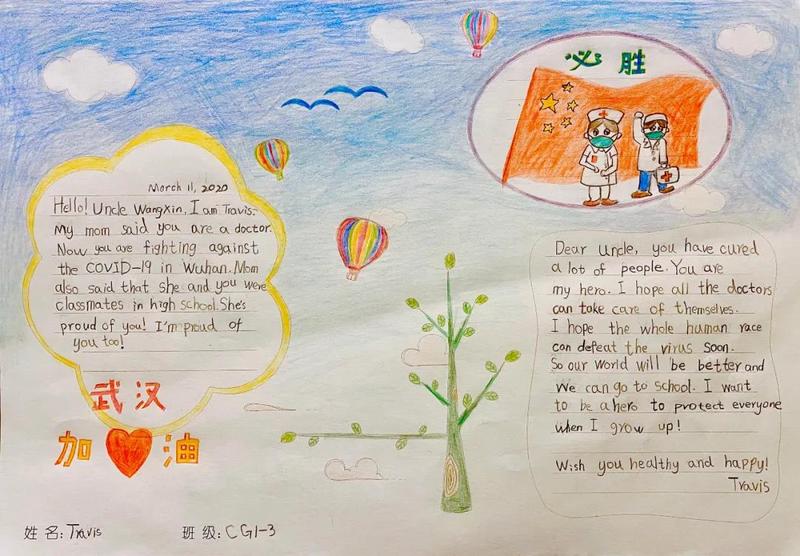 必胜
March 11, 2020
Hello! Uncle Wangxin, I am Travis.
My mom said you are a doctor.
Now you are fighting against
the COVID-19 in Wuhan. Mom
also said that she and you were
classmates in high school. She's
proud of you! I'm proud of
you too!
武汉
加油
Dear Uncle, you have cured
a lot of people. You are
my hero. I hope all the doctors
can take care of themselves.
I hope the whole human race
can defeat the virus soon.
So our world will be better and
We can go to school. I want
to be a hero to protect everyone
when I grow up!
Wish you healthy and happy!
Travis
姓名: Travis 班级: CG1-3